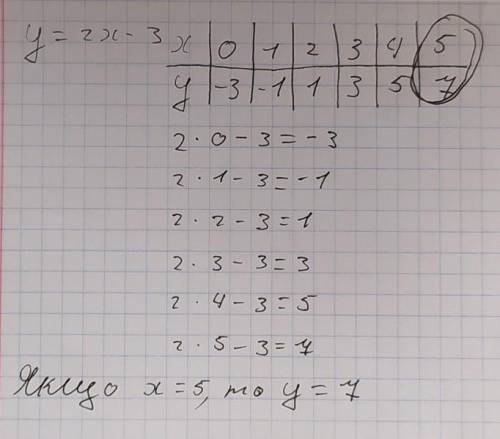 y = 2x - 3
x | 0 | 1 | 2 | 3 | 4 | 5
y | -3 | -1 | 1 | 3 | 5 | 7
2 · 0 - 3 = - 3
2 · 1 - 3 = - 1
2 · 2 - 3 = 1
2 · 3 - 3 = 3
2 · 4 - 3 = 5
2 · 5 - 3 = 7
Якщо x = 5, то y = 7